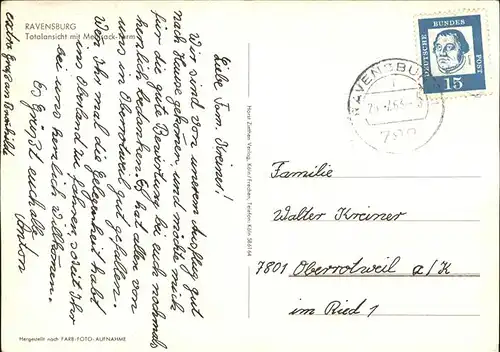 RAVENSBURG
Totalansicht mit Mehlsack-Turm
Liebe Fam. Kreiner!
Wir sind von unseren Ausflug gut
nach Hause gekommen und möchte mich
für die gute Bewirtung bei euch nochmals
herzlich bedanken. Es hat allen von
uns in Oberrotweil gut gefallen.
Wenn Ihr mal die Gelegenheit habt
ins Oberland zu fahren, seid Ihr
bei uns herzlich willkommen.
Es grüßt euch alle
Anton
extra Gruß an
Horst Ziethen Verlag, Köln/Frechen, Telefon: Köln
Hergestellt nach FARB-FOTO-AUFNAHME
DEUTSCHE BUNDES POST
15
RAVENSBURG
Familie
Walter Kreiner
7801 Oberrotweil a/K
im Ried 1